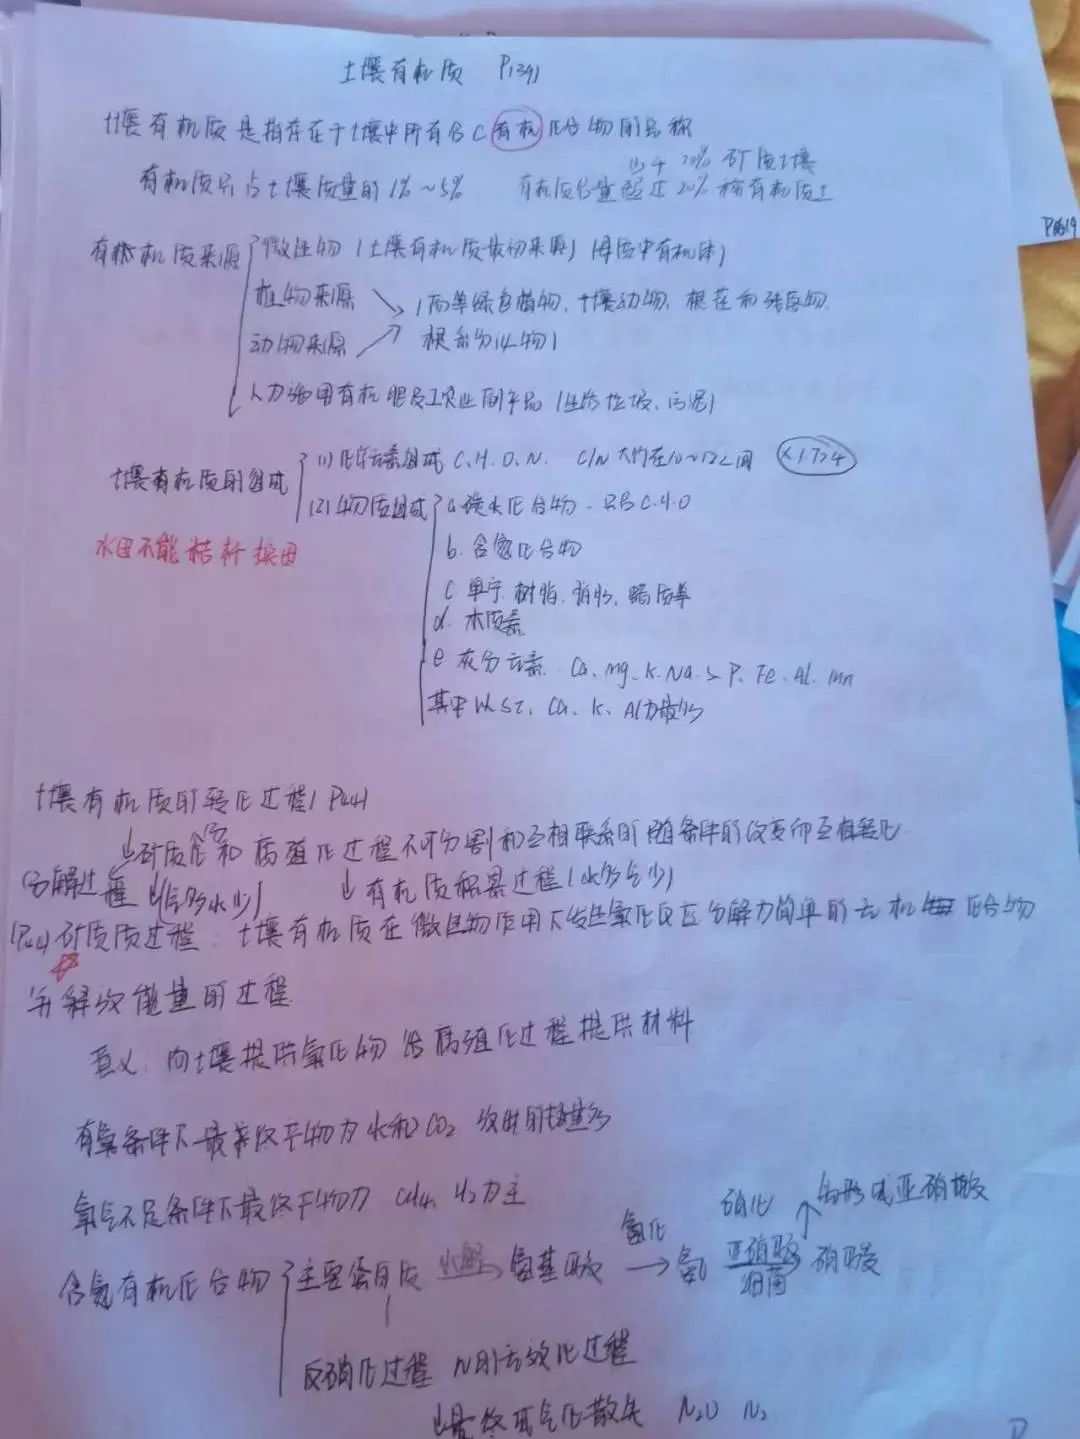 土壤有机质 P(39)
土壤有机质是指存在于土壤中所有含C有机化合物的总称
少于20% 矿质土壤
有机质只占土壤质量的1%~5% 有机质含量超过20%称有机质土
有机质来源 微生物(土壤有机质最初来源)(母质中有机体)
植物来源 (高等绿色植物、土壤动物、根茬和残落物、
动物来源 根系分泌物)
人为施用有机肥及工农业副产品(生活垃圾、污泥)
土壤有机质的组成 (1)化学元素组成 C.H.O.N. C/N大约在10~12之间 ×1.724
(2)物质组成 a.碳水化合物-只含C.H.O
水田不能秸秆换田
b.含氮化合物
c 单宁、树脂、脂肪、蜡质等
d. 木质素
e 灰分元素 Ca、Mg、K、Na、S、P、Fe、Al、Mn
其中以Si、Ca、K、Al为最多
土壤有机质的转化过程(P44)
矿质化和腐殖化过程不可分割和互相联系的随条件的改变而互相转化
分解过程 (气多水少) 有机质积累过程(水多气少)
(P44)矿质质过程:土壤有机质在微生物作用下发生氧化反应分解为简单的无机化合物
并释放能量的过程
意义:向土壤提供氧化物 给腐殖化过程提供材料
有氧条件下最终产物为水和CO₂ 放出的能量多
氧气不足条件下最终产物为CH₄、H₂为主
硝化 而形成亚硝酸
含氮有机化合物 主要蛋白质 水解→ 氨基酸 氨化→ 氨 亚硝酸细菌→ 硝酸
反硝化过程 N的无效化过程
最终 气化散失 N₂O N₂